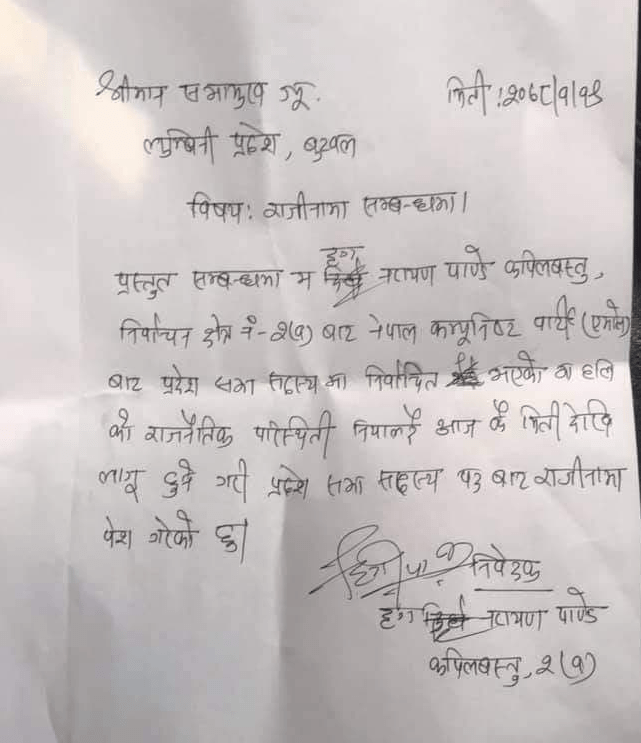 श्रीमान सभामुख ज्यू.
मिती : २०७८/१/१९
लुम्बिनी प्रदेश, बुटवल
विषय: राजीनामा सम्बन्धमा।
प्रस्तुत सम्बन्धमा म दृग नारायण पाण्डे कपिलबस्तु,
निर्वाचन क्षेत्र नं-२(१) बाट नेपाल कम्युनिष्ट पार्टी (एमाले)
बाट प्रदेश सभा सदस्य मा निर्वाचित भएको मा हाल
को राजनैतिक परिस्थिती नियाल्दै आज कै मिती देखि
लागू हुने गरी प्रदेश सभा सदस्य पद बाट राजीनामा
पेश गरेको छु।
निवेदक
दृग नारायण पाण्डे
कपिलबस्तु, २(१)